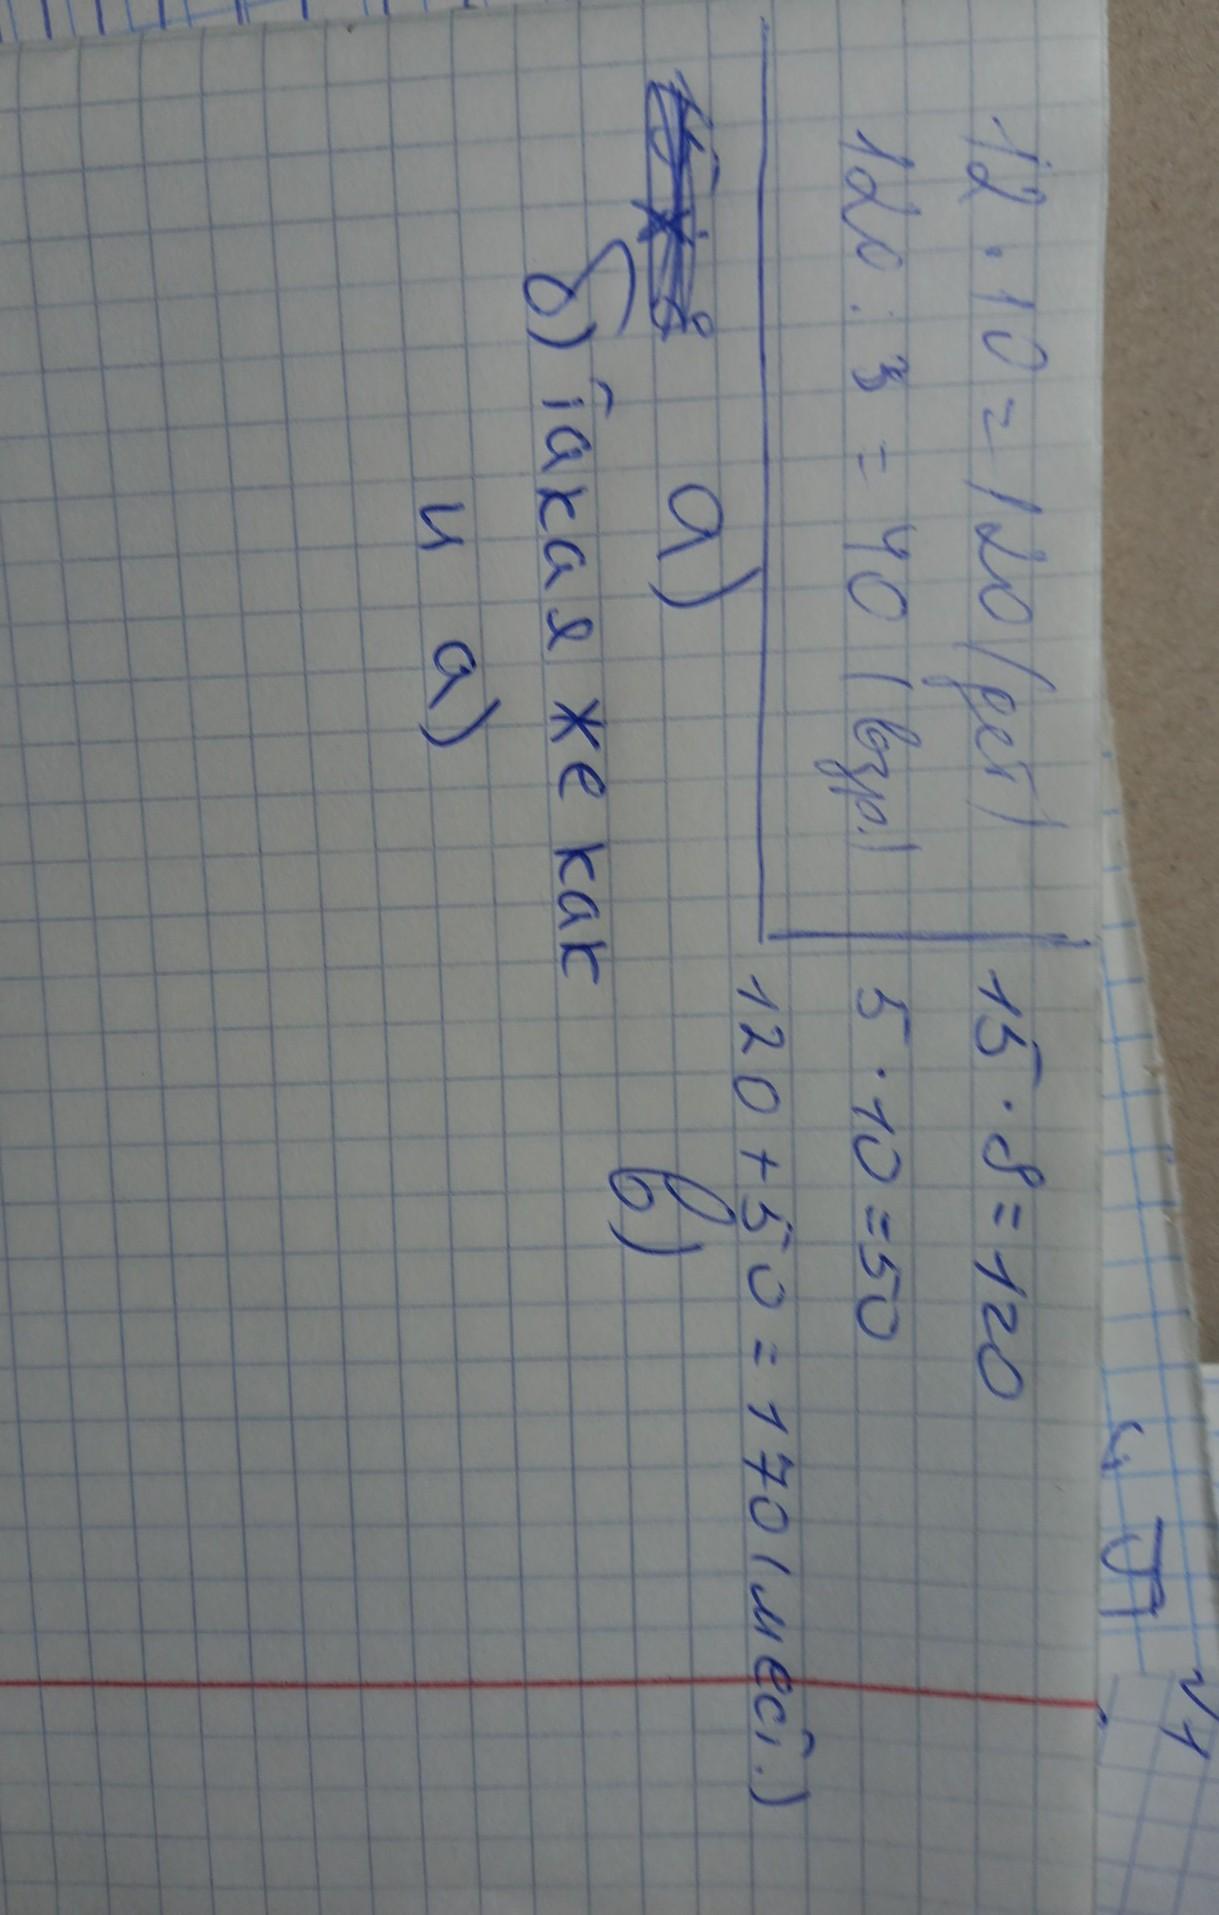 12 · 10 = 120 (дет)
120 : 3 = 40 (взр.)
а)
б) такая же как
и а)
15 · 8 = 120
5 · 10 = 50
120 + 50 = 170 (мест.)
в)